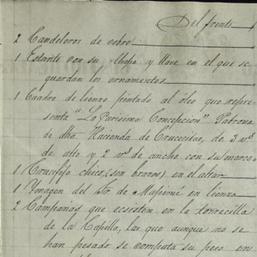 Del frente
2 Candeleros de cobre
1 Estante con su chapa y llave en el que se
guardan los ornamentos
1 Cuadro de lienzo pintado al óleo que repre
senta "La Purísima Concepcion" Patrona
de dha. Hacienda de Cruecitas, de 3 vs.
de alto y 2 vs. de ancho con su marco
1 Crucifijo chico, (son bronce) en el altar
1 Ymagen del Sr. de Mapimí en lienzo
2 Campanas que ecsisten en la torrecilla
de la Capilla, las que aunque no
se han pesado se computa su peso en